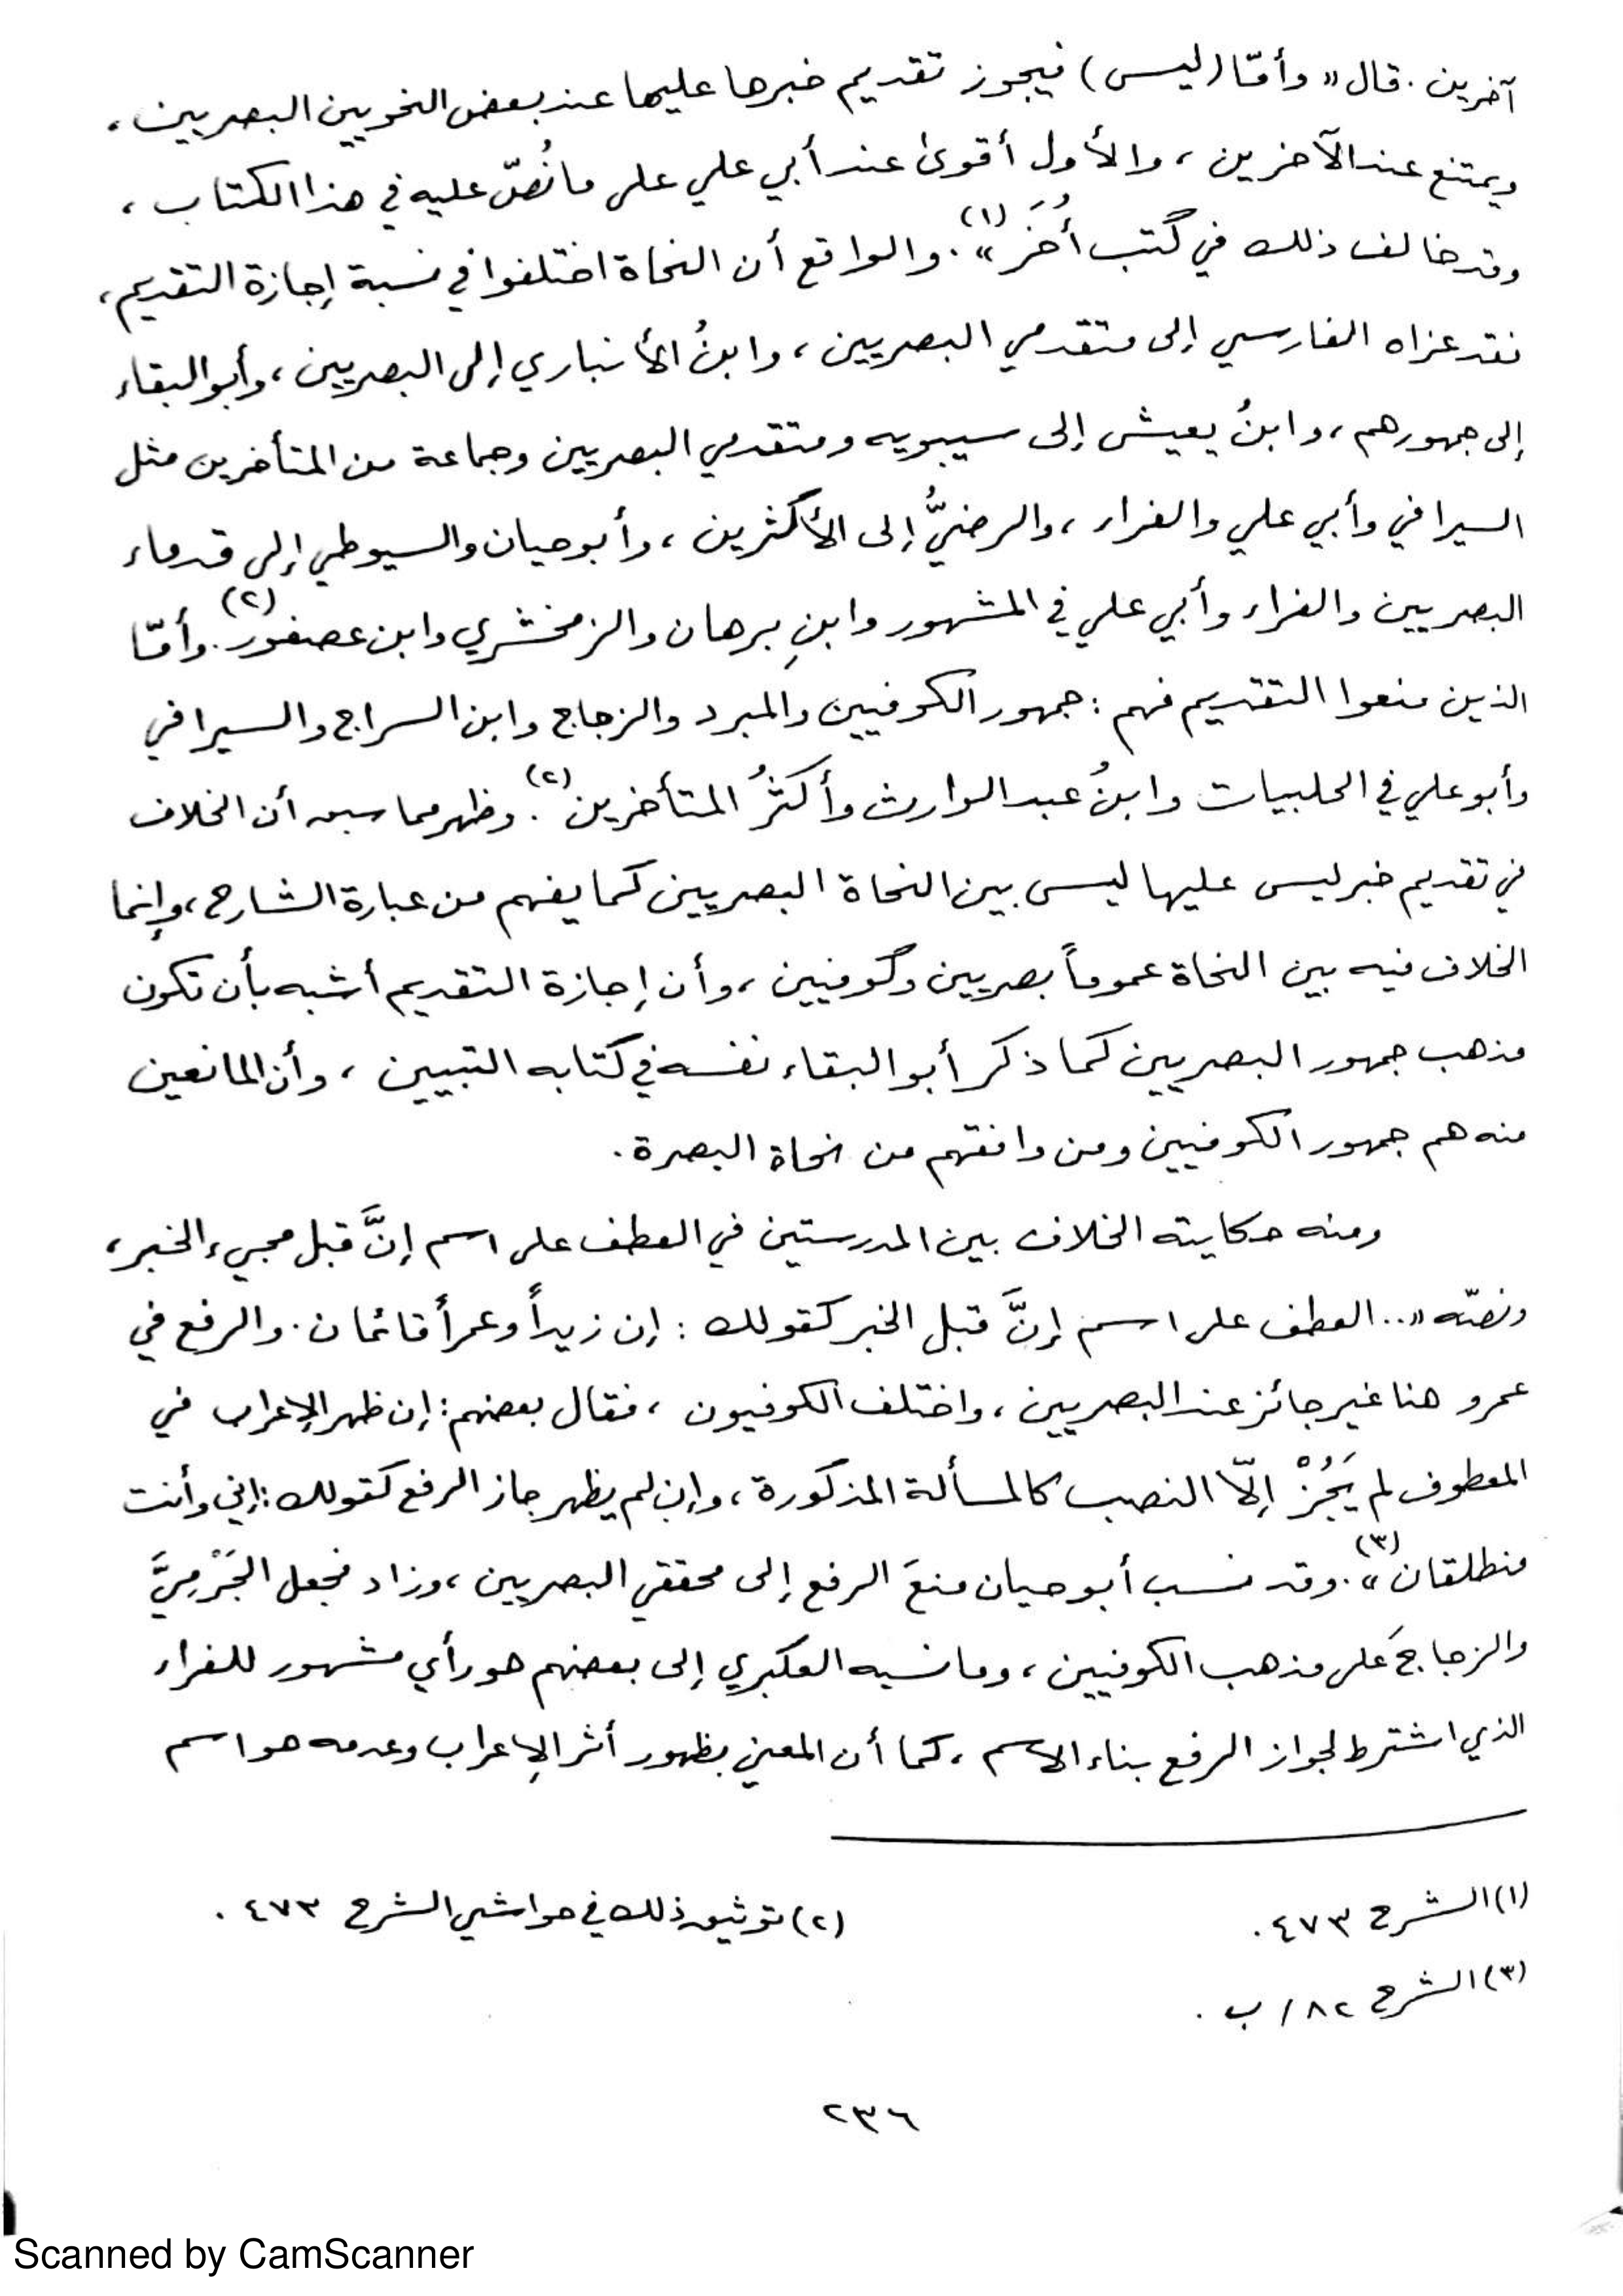 آخرين. قال «وأمّا (ليس) فيجوز تقديم خبرها عليها عند بعض النحويين البصريين،
ويمتنع عند الآخرين، والأول أقوى عند أبي علي على ما نُصّ عليه في هذا الكتاب،
وقد خالف ذلك في كتب أُخَرَ»(١). والواقع أن النحاة اختلفوا في نسبة إجازة التقديم،
فقد عزاه الفارسي إلى متقدمي البصريين، وابنُ الأنباري إلى البصريين، وأبو البقاء
إلى جمهورهم، وابنُ يعيش إلى سيبويه ومتقدمي البصريين وجماعة من المتأخرين مثل
السيرافي وأبي علي والفراء، والرضيُّ إلى الأكثرين، وأبو حيان والسيوطي إلى قدماء
البصريين والفراء وأبي علي في المشهور وابنِ برهان والزمخشري وابن عصفور(٢). وأمّا
الذين منعوا التقديم فهم: جمهور الكوفيين والمبرد والزجاج وابن السراج والسيرافي
وأبو علي في الحلبيات وابنُ عبد الوارث وأكثرُ المتأخرين(٢). وظهر مما سبق أن الخلاف
في تقديم خبر ليس عليها ليس بين النحاة البصريين كما يفهم من عبارة الشارح، وإنما
الخلاف فيه بين النحاة عموماً بصريين وكوفيين، وأن إجازة التقديم أشبه بأن تكون
مذهب جمهور البصريين كما ذكر أبو البقاء نفسه في كتابه التبيين، وأن المانعين
منه هم جمهور الكوفيين ومن وافقهم من نحاة البصرة.
ومنه حكايته الخلاف بين المدرستين في العطف على اسم إنَّ قبل مجيء الخبر،
ونصّه «.. العطف على اسم إنَّ قبل الخبر كقولك: إن زيداً وعمراً قائمان. والرفع في
عمرو هنا غير جائز عند البصريين، واختلف الكوفيون، فقال بعضهم: إن ظهر الإعراب في
المعطوف لم يَجُزْ إلّا النصب كالمسألة المذكورة، وإن لم يظهر جاز الرفع كقولك: إني وأنت
منطلقان»(٣). وقد نسب أبو حيان منعَ الرفع إلى محققي البصريين، وزاد فجعل الجَرْميَّ
والزجاجَ على مذهب الكوفيين، وما نسبه العكبري إلى بعضهم هو رأي مشهور للفراء
الذي اشترط لجواز الرفع بناء الاسم، كما أن المعني بظهور أثر الإعراب وعدمه هو اسم
(١) الشرح ٤٧٣. (٢) توثيق ذلك في حواشي الشرح ٤٧٣.
(٣) الشرح ٨٢/ب.
٢٣٦
Scanned by CamScanner